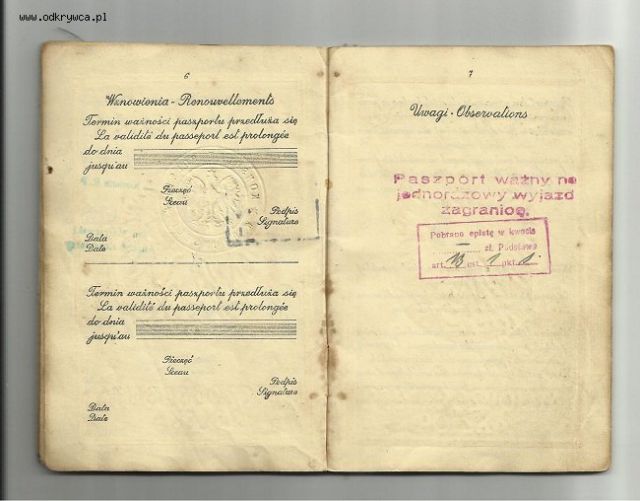 www.odkrywca.pl
6
Wznowienia - Renouvellements
Termin ważności paszportu przedłuża się
La validité du passeport est prolongée
do dnia
jusqu'au
Pieczęć
Sceau
Podpis
Signature
Data
Date
Termin ważności paszportu przedłuża się
La validité du passeport est prolongée
do dnia
jusqu'au
Pieczęć
Sceau
Podpis
Signature
Data
Date
7
Uwagi - Observations
Paszport ważny na
jednorazowy wyjazd
zagranicę.
Pobrano opłatę w kwocie
— zł. Podstawa
art. 13 ust. 1 pkt. 1.